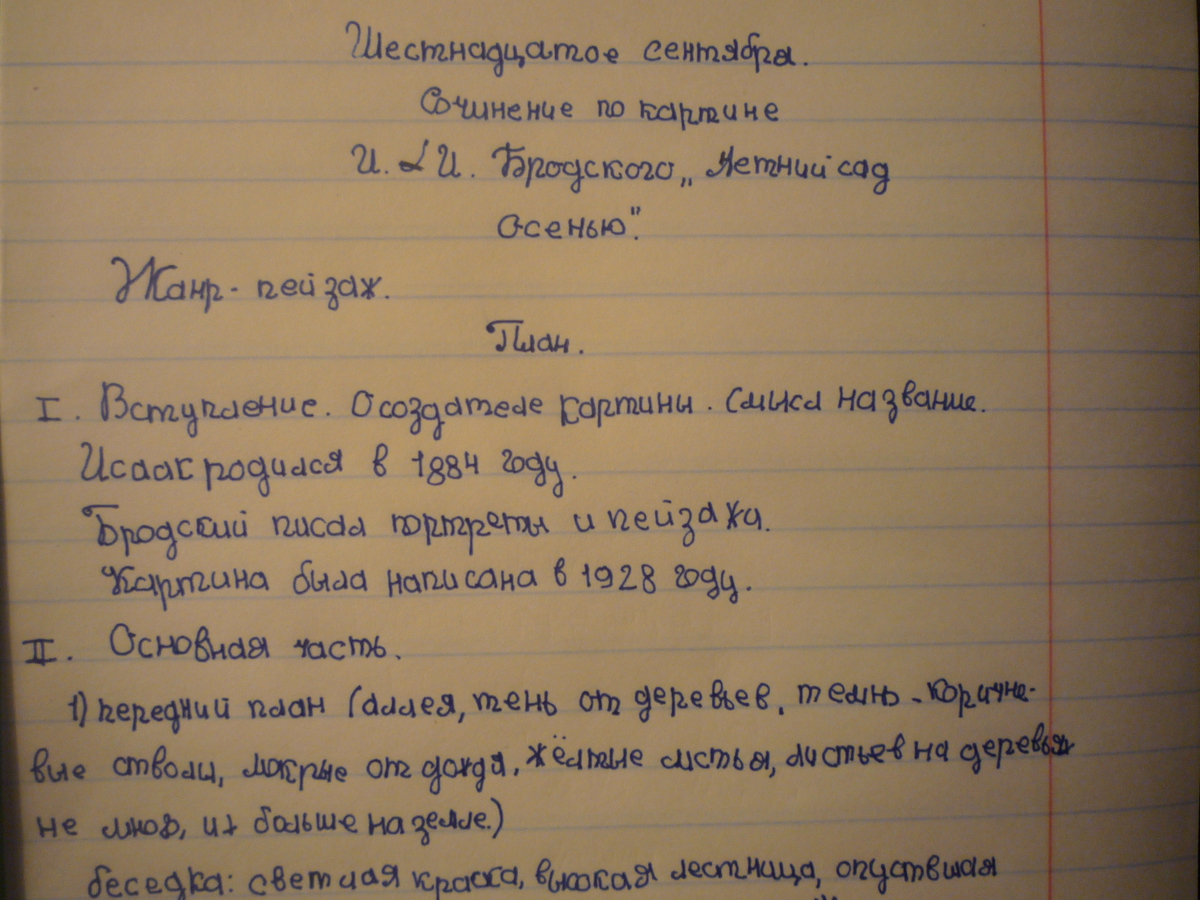 Шестнадцатое сентября.
Сочинение по картине
И. И. Бродского „Летний сад
осенью".
Жанр - пейзаж.
План.
I. Вступление. О создателе картины. Смысл название.
Исаак родился в 1884 году.
Бродский писал портреты и пейзажи.
Картина была написана в 1928 году.
II. Основная часть.
1) передний план (аллея, тень от деревьев, темно-коричне-
вые стволы, мокрые от дождя, жёлтые листья, листьев на деревьях
не много, их больше на земле.)
беседка: светлая краска, высокая лестница, опустевшая